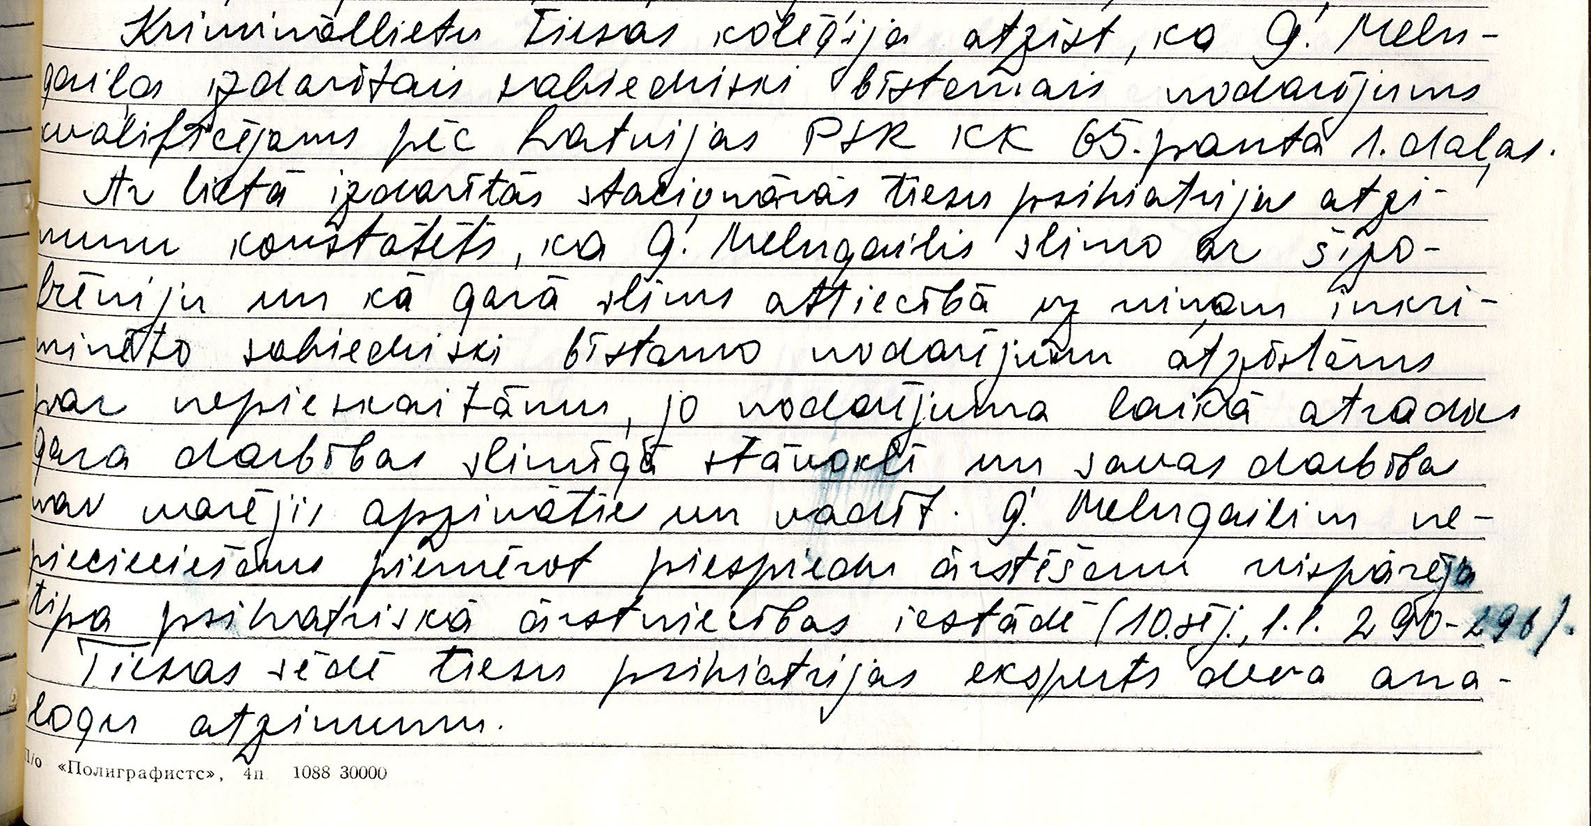 Krimināllietu tiesas kolēģija atzīst, ka Ģ. Meln-
gaiļa izdarītais sabiedriski bīstamais nodarījums
kvalificējams pēc Latvijas PSR KK 65. panta 1. daļas.
Ar lietā izdarītās stacionārās tiesu psihiatrijas atzi-
numu konstatēts, ka Ģ. Melngailis slimo ar šizo-
frēniju un kā garā slims attiecībā uz viņam inkri-
minēto sabiedriski bīstamo nodarījumu atzīstams
par nepieskaitāmu, jo nodarījuma laikā atradies
gara darbības slimīgā stāvoklī un savas darbības
nav varējis apzināties un vadīt. Ģ. Melngailim ne-
pieciešams piemērot piespiedu ārstēšanu vispārēja
tipa psihiatriskā ārstniecības iestādē (10. sēj., l.l. 290-296).
Tiesas sēdē tiesu psihiatrijas eksperts deva ana-
logu atzinumu.
П/о «Полиграфистс», 4п 1088 30000